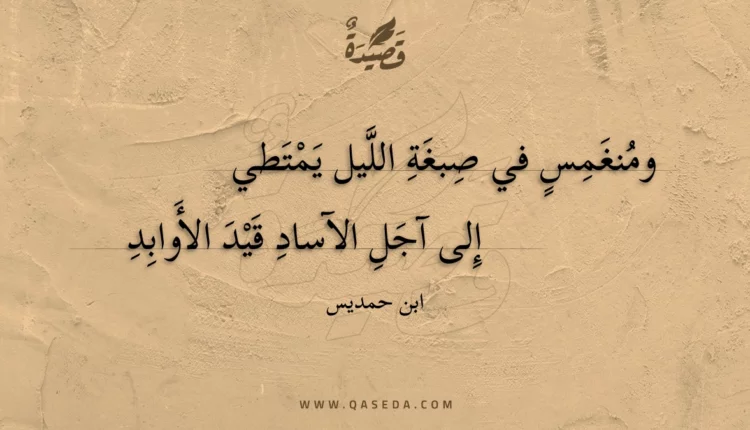 قَصِيْدَةٌ
ومُنغَمِسٍ في صِبغَةِ اللَّيل يَمْتَطي
إِلى آجَلِ الآسادِ قَيْدَ الأَوابِدِ
ابن حمديس
WWW.QASEDA.COM